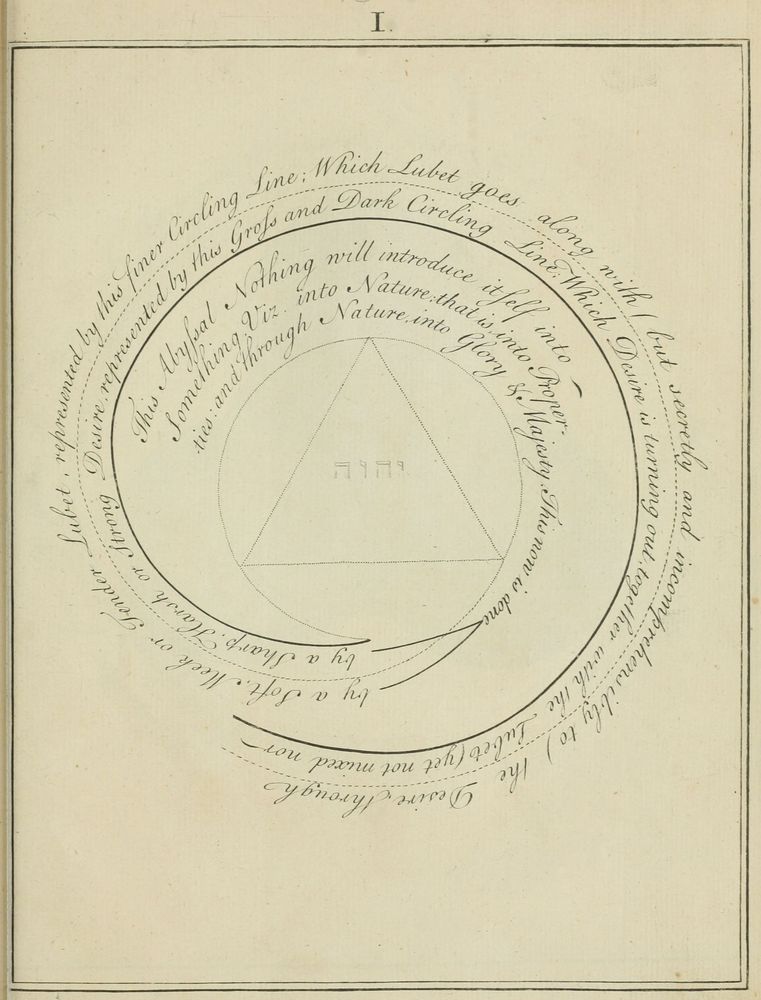 I.
This Abyſsal Nothing will introduce itſelf into
Something, Viz. into Nature: that is, into Proper-
ties: and through Nature, into Glory & Majesty. This now is done
by a Sharp, Harsh or Strong Desire, represented by this Groſs and Dark Circling Line; Which Desire is turning out, together with the Lubet (yet not mixed nor
by a Soft, Meek or Tender Lubet, represented by this finer Circling Line; Which Lubet goes along with (but secretly and incomprehensibly to) the Desire, through
יהוה